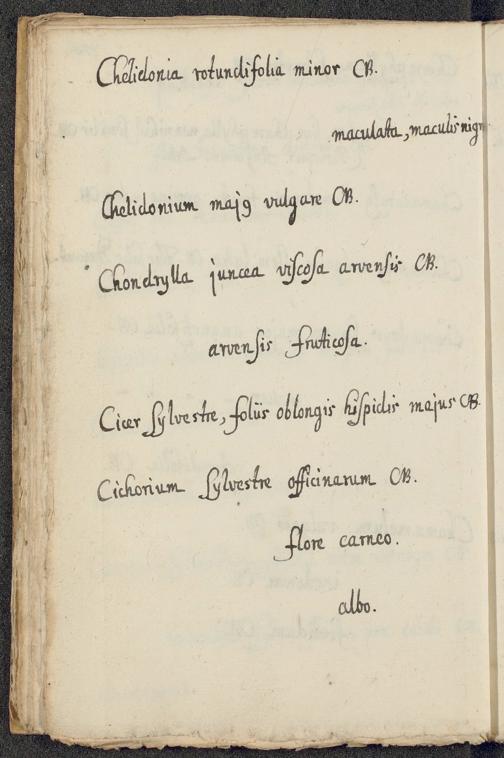 Chelidonia rotundifolia minor CB.
maculata, maculis nigr
Chelidonium maj9 vulgare CB.
Chondrylla juncea viscosa arvensis CB.
arvensis fruticosa.
Cicer sylvestre, foliis oblongis hispidis majus CB.
Cichorium sylvestre officinarum CB.
flore carneo.
albo.